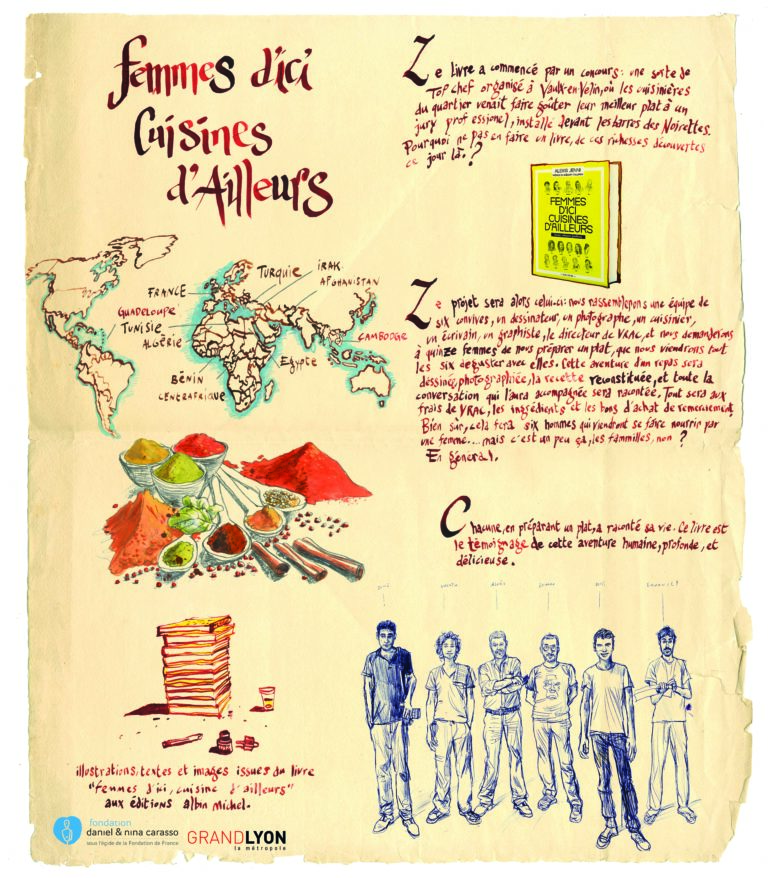 femmes d'ici
Cuisines
d'Ailleurs
Le livre a commencé par un concours: une sorte de
Top chef organisé à Vaulx-en-Velin, où les cuisinières
du quartier venait faire goûter leur meilleur plat à un
jury professionel, installé devant les barres des Noirettes.
Pourquoi ne pas en faire un livre, de ces richesses découvertes
ce jour là.?
ALEXIS JENNI
FEMMES
D'ICI
CUISINES
D'AILLEURS
TURQUIE
IRAK
AFGHANISTAN
FRANCE
GUADELOUPE
TUNISIE
ALGÉRIE
CAMBODGE
Egypte
BÉNIN
CENTRAFRIQUE
Le projet sera alors celui-ci: nous rassemblerons une équipe de
six convives, un dessinateur, un photographe, un cuisinier,
un écrivain, un graphiste, le directeur de VRAC, et nous demanderons
à quinze femmes de nous préparer un plat, que nous viendrons tout
les six déguster avec elles. Cette aventure d'un repas sera
dessinée, photographiée, la recette reconstituée, et toute la
conversation qui l'aura accompagnée sera racontée. Tout sera aux
frais de VRAC, les ingrédients et les bons d'achat de remerciement.
Bien sur, cela fera six hommes qui viendront se faire nourrir par
une femme... mais c'est un peu ça, les familles, non ?
En général.
Chacune, en préparant un plat, a raconté sa vie. Ce livre est
le témoignage de cette aventure humaine, profonde, et
délicieuse.
illustrations, textes et images issues du livre
"femmes d'ici, cuisine d'ailleurs"
aux éditions albin Michel.
fondation
daniel & nina carasso
sous l'égide de la Fondation de France
GRANDLYON
la métropole